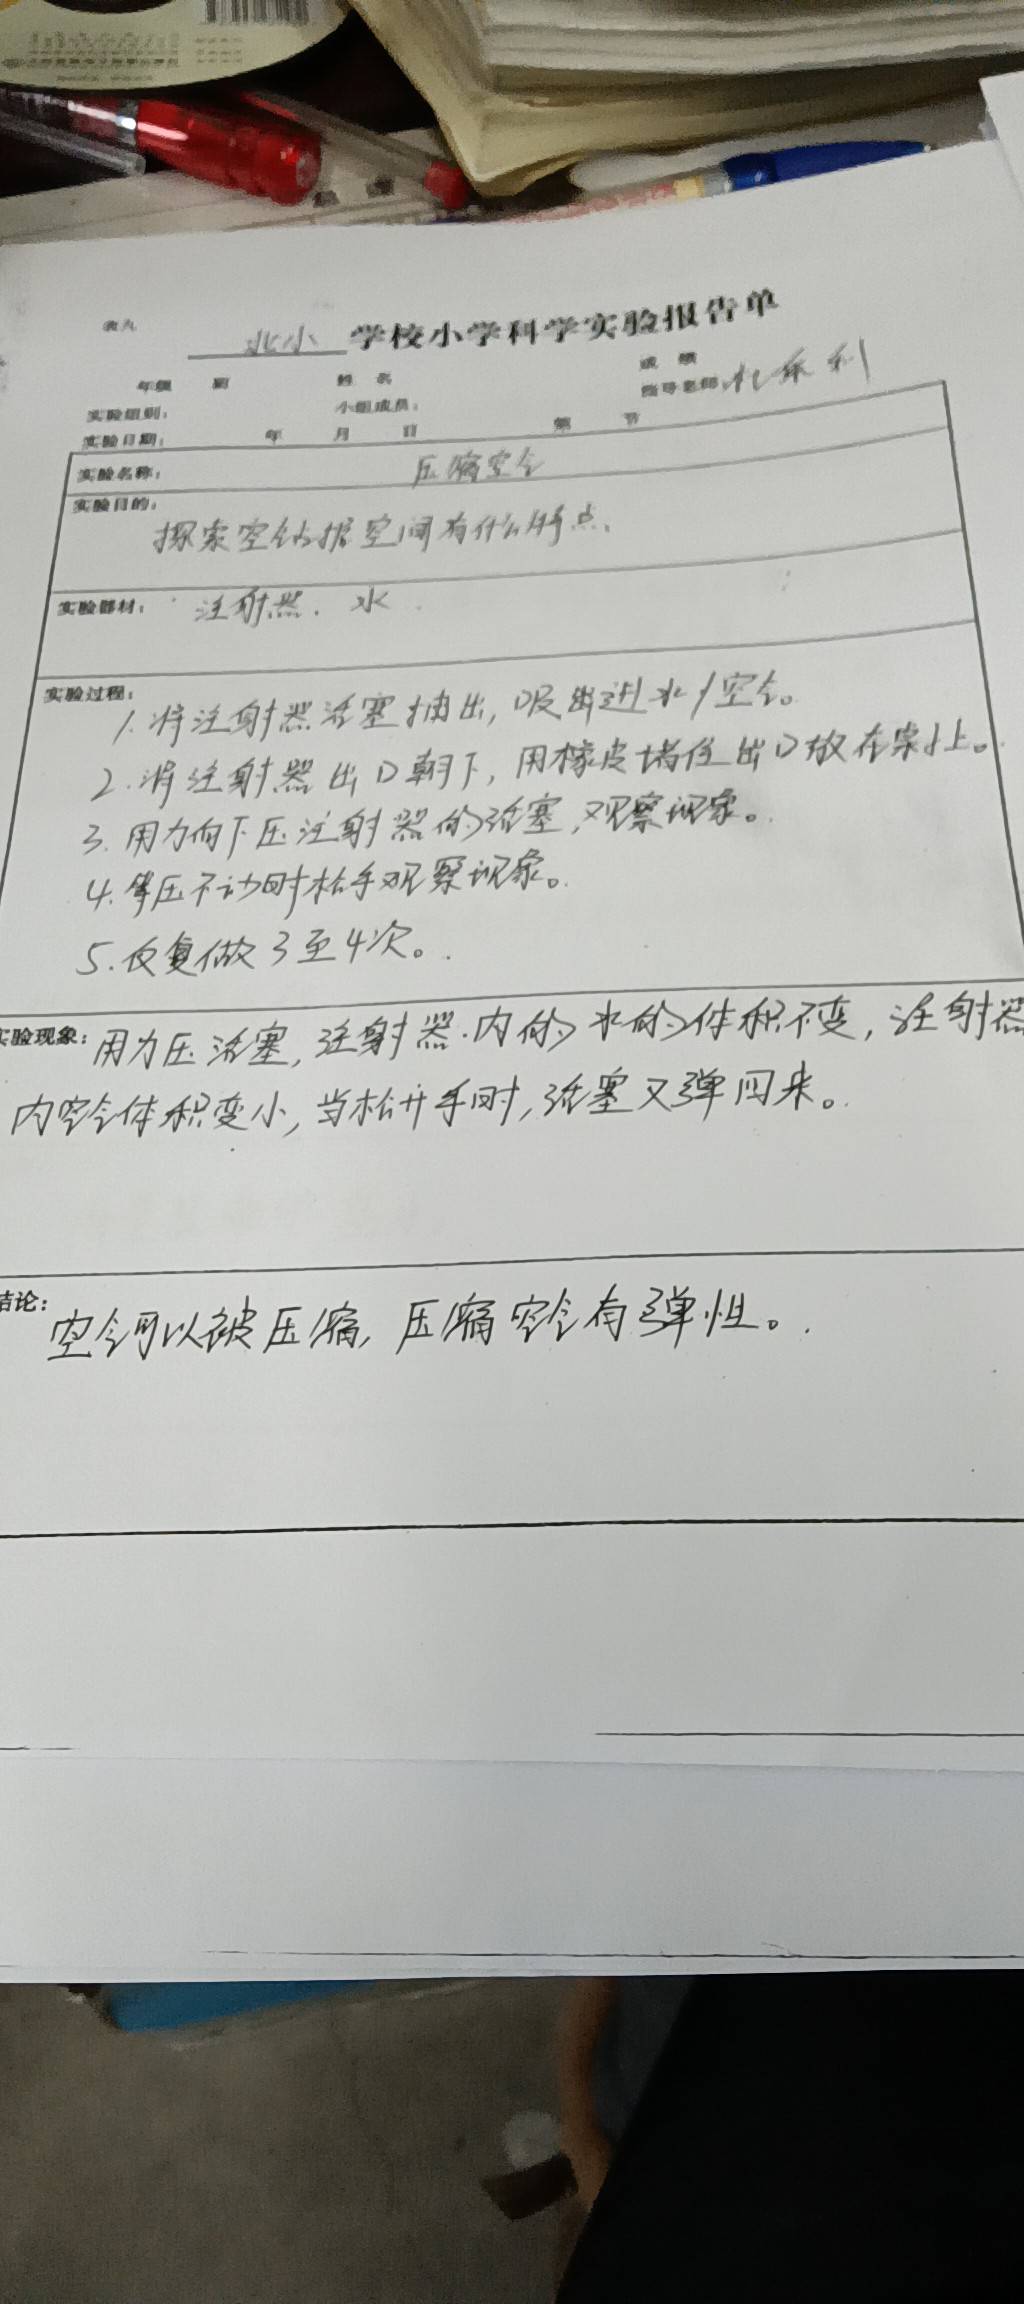 表九
北小 学校小学科学实验报告单
年级 班 姓 名 成 绩
实验组别: 小组成员: 指导老师:
实验日期: 年 月 日 第 节
实验名称: 压缩空气
实验目的:
探索空气占据空间有什么特点。
实验器材: 注射器. 水
实验过程:
1.将注射器活塞抽出,吸进水/空气。
2.将注射器出口朝下,用橡皮堵住出口放在桌上。
3.用力向下压注射器的活塞,观察现象。
4.等压不动时松手观察现象。
5.反复做3至4次。
实验现象:用力压活塞,注射器内的水的体积不变,注射器
内空气体积变小,当松开手时,活塞又弹回来。
结论:空气可以被压缩,压缩空气有弹性。